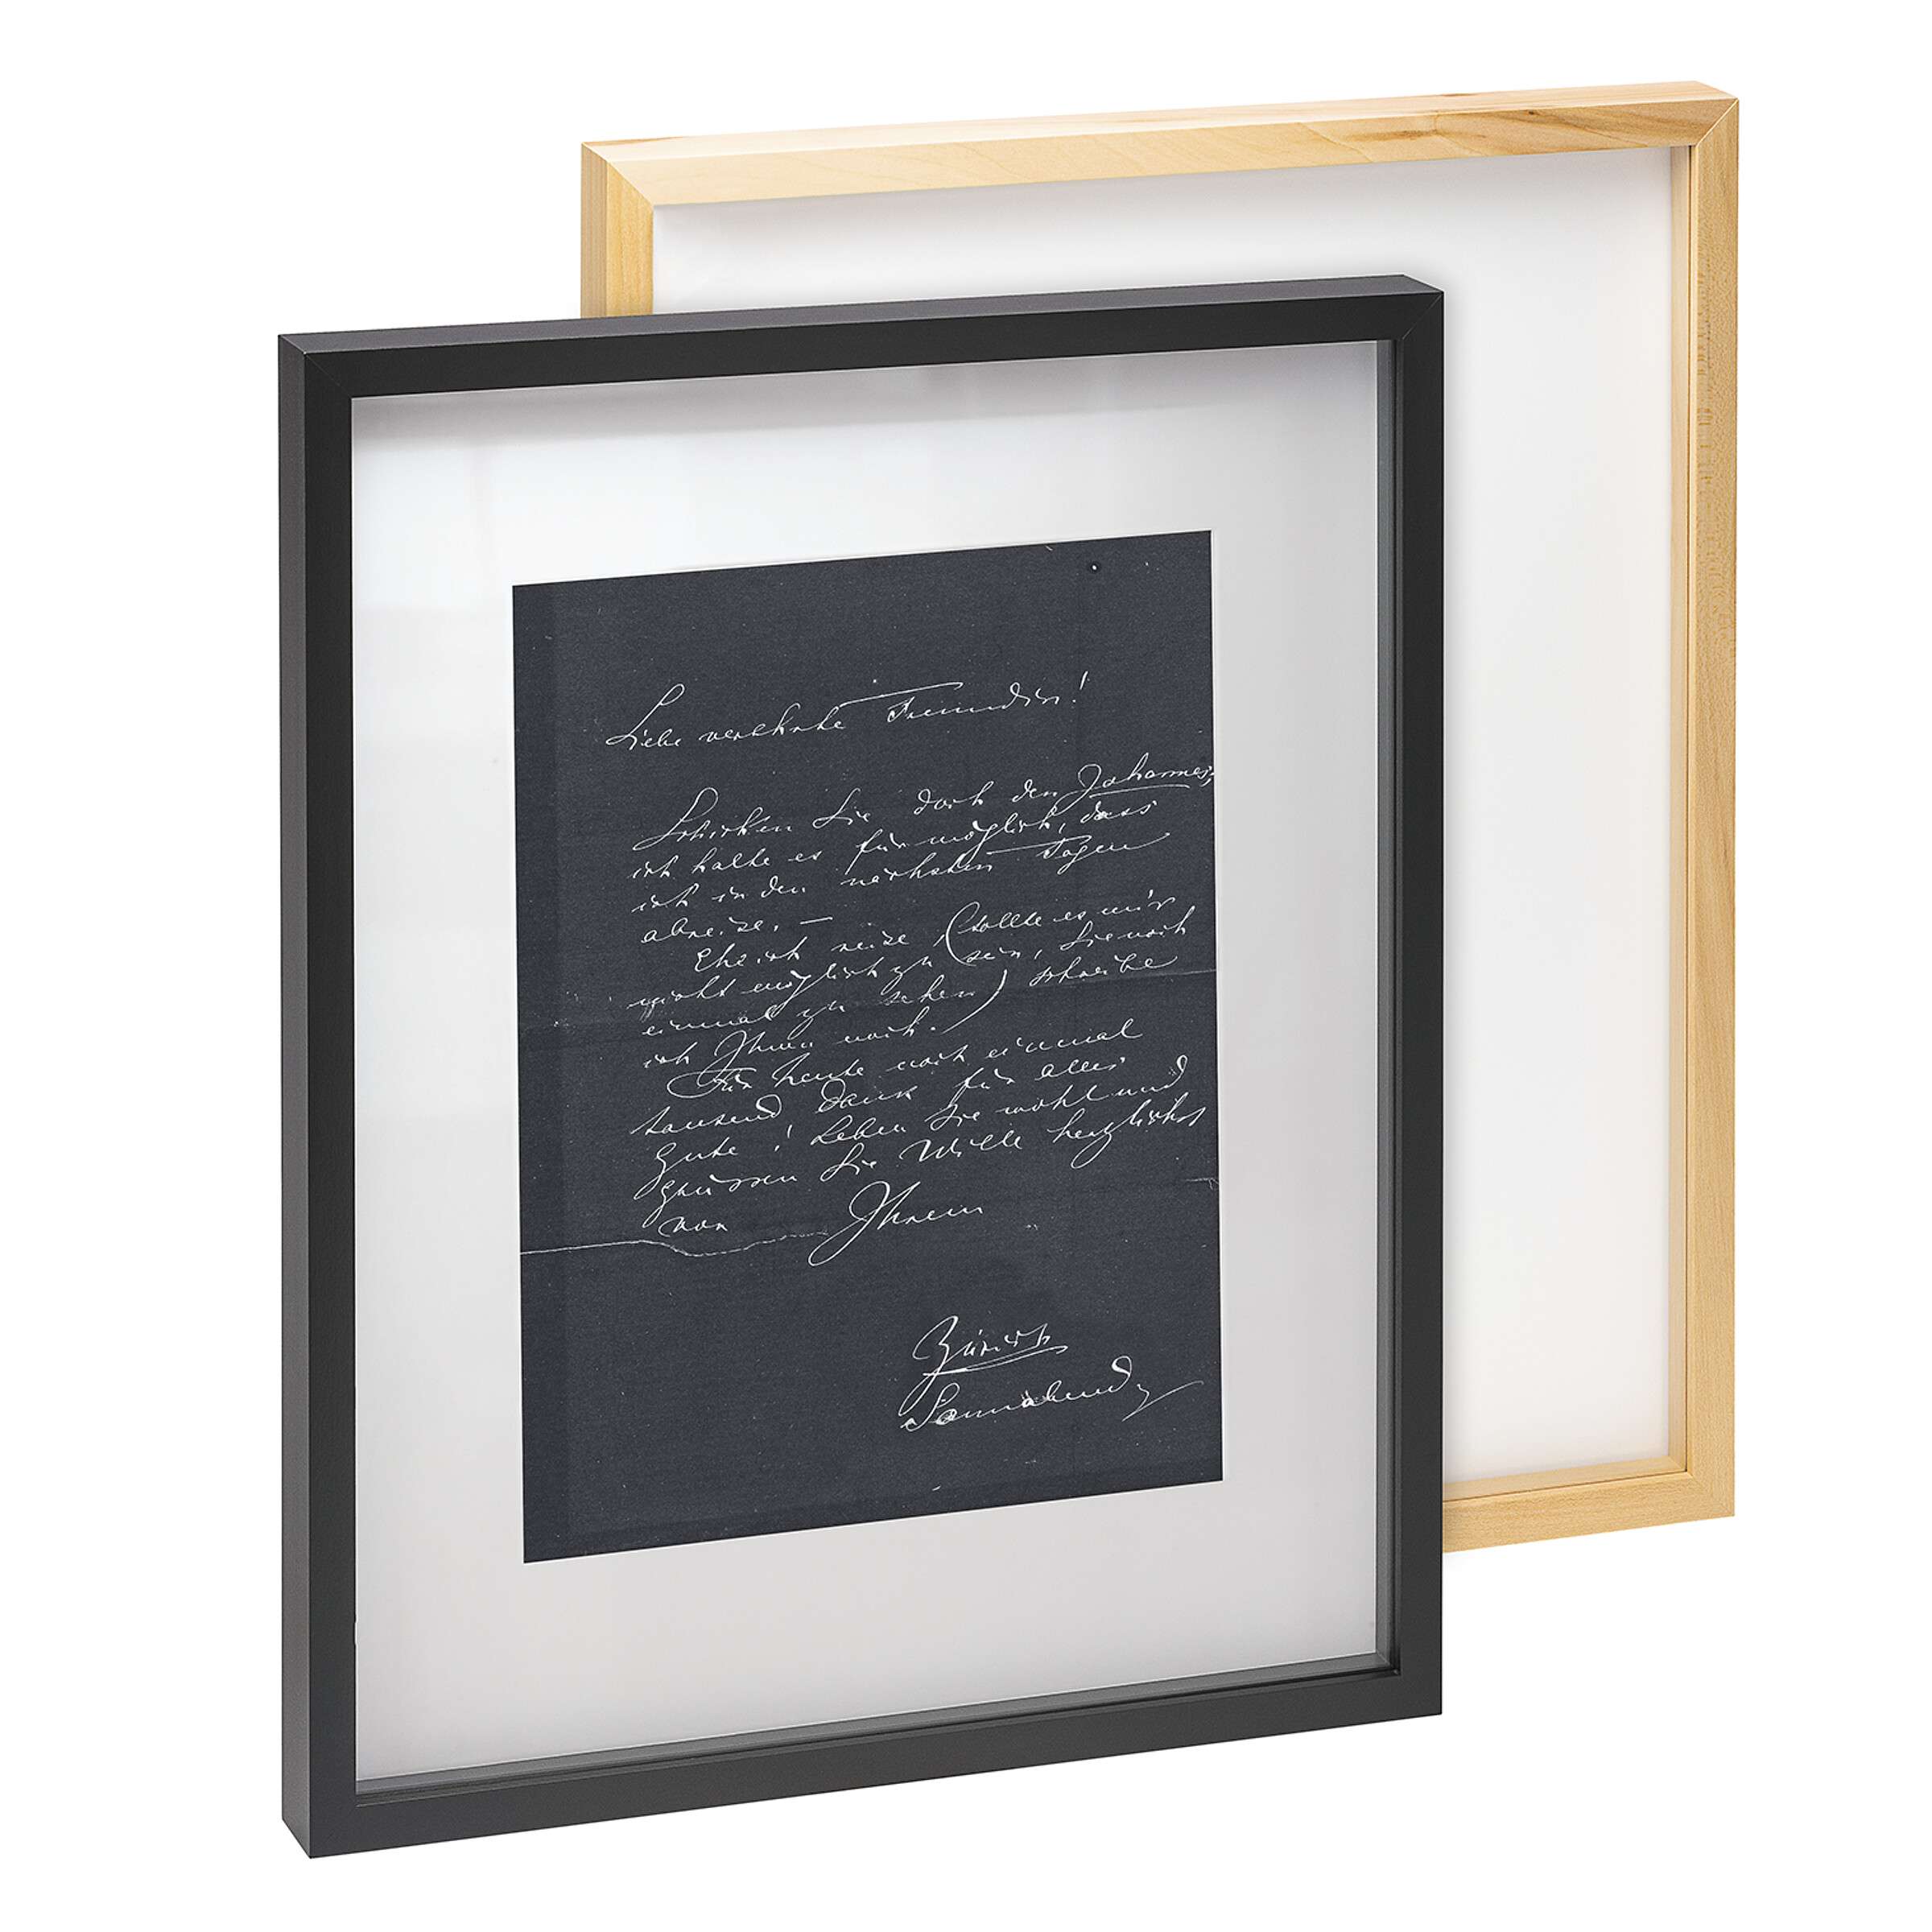 Liebe verehrte Freundin!
Schicken Sie doch den Johannes,
ich halte es für möglich, dass
ich in den nächsten Tagen
abreise. —
Ehe ich reise, (sollte es mir
nicht möglich zu sein, Sie noch
einmal zu sehen) schreibe
ich Ihnen noch.
Für heute noch einmal
tausend Dank für alles
Gute! Leben Sie wohl und
grüssen Sie Wille herzlichst
von Ihrem
Zürich
Sonnabend